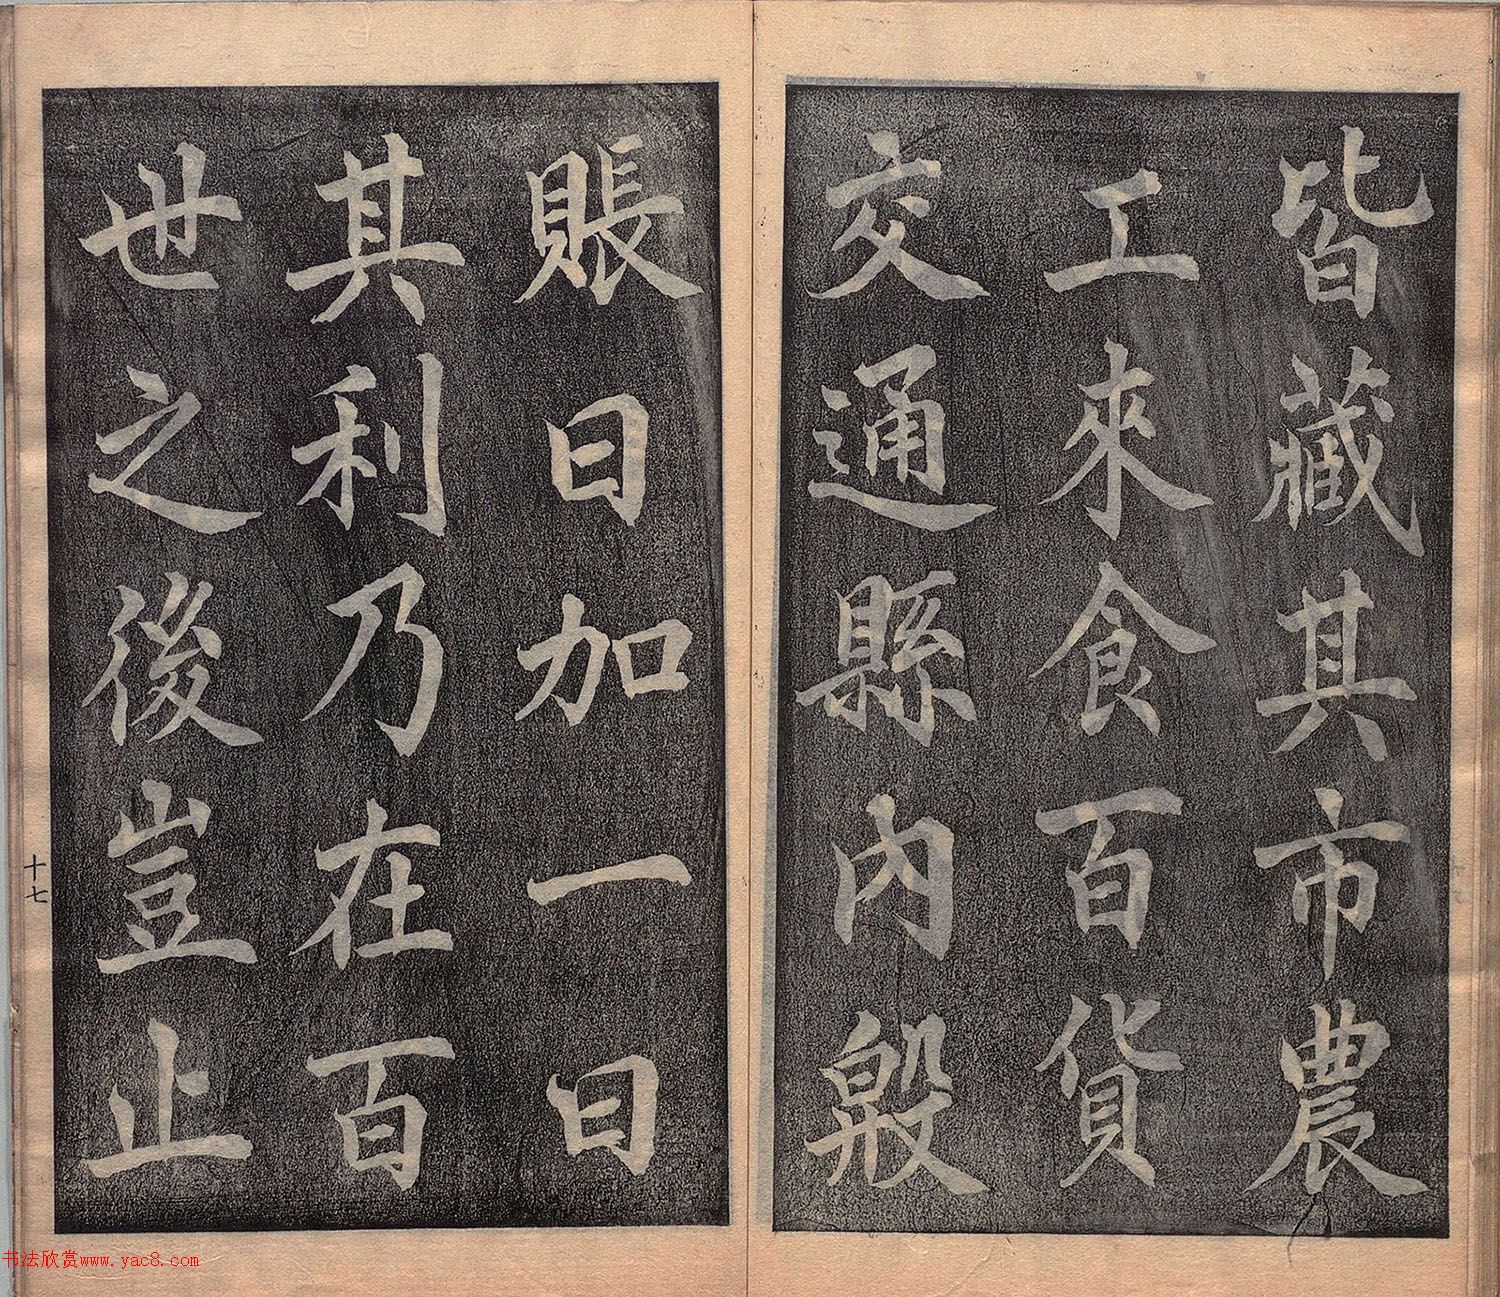 皆藏其市農
工來食百貨
交通縣內殷
賬日加一日
其利乃在百
世之後豈止
十七
书法欣赏www.yac8.com